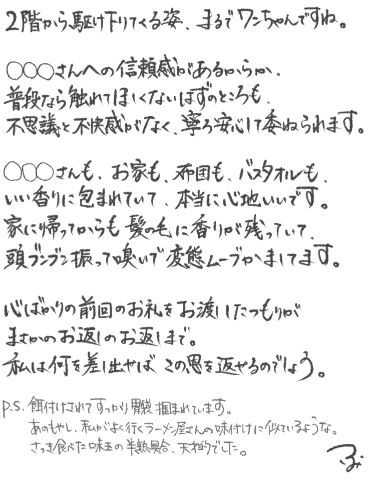 2階から駆け下りてくる姿、まるでワンちゃんですね。
〇〇〇さんへの信頼感があるからか、
普段なら触れてほしくないはずのところも、
不思議と不快感がなく、寧ろ安心して委ねられます。
〇〇〇さんも、お家も、布団も、バスタオルも、
いい香りに包まれていて、本当に心地いいです。
家に帰ってからも髪の毛に香りが残っていて、
頭ブンブン振って嗅いで変態ムーブかましてます。
心ばかりの前回のお礼をお渡ししたつもりが
まさかのお返しのお返しまで。
私は何を差し出せばこの恩を返せるのでしょう。
P.S. 餌付けされてすっかり胃袋掴まれています。
あのもやし、私がよく行くラーメン屋さんの味付けに似ているような。
さっき食べた味玉の半熟具合、天才的でした。